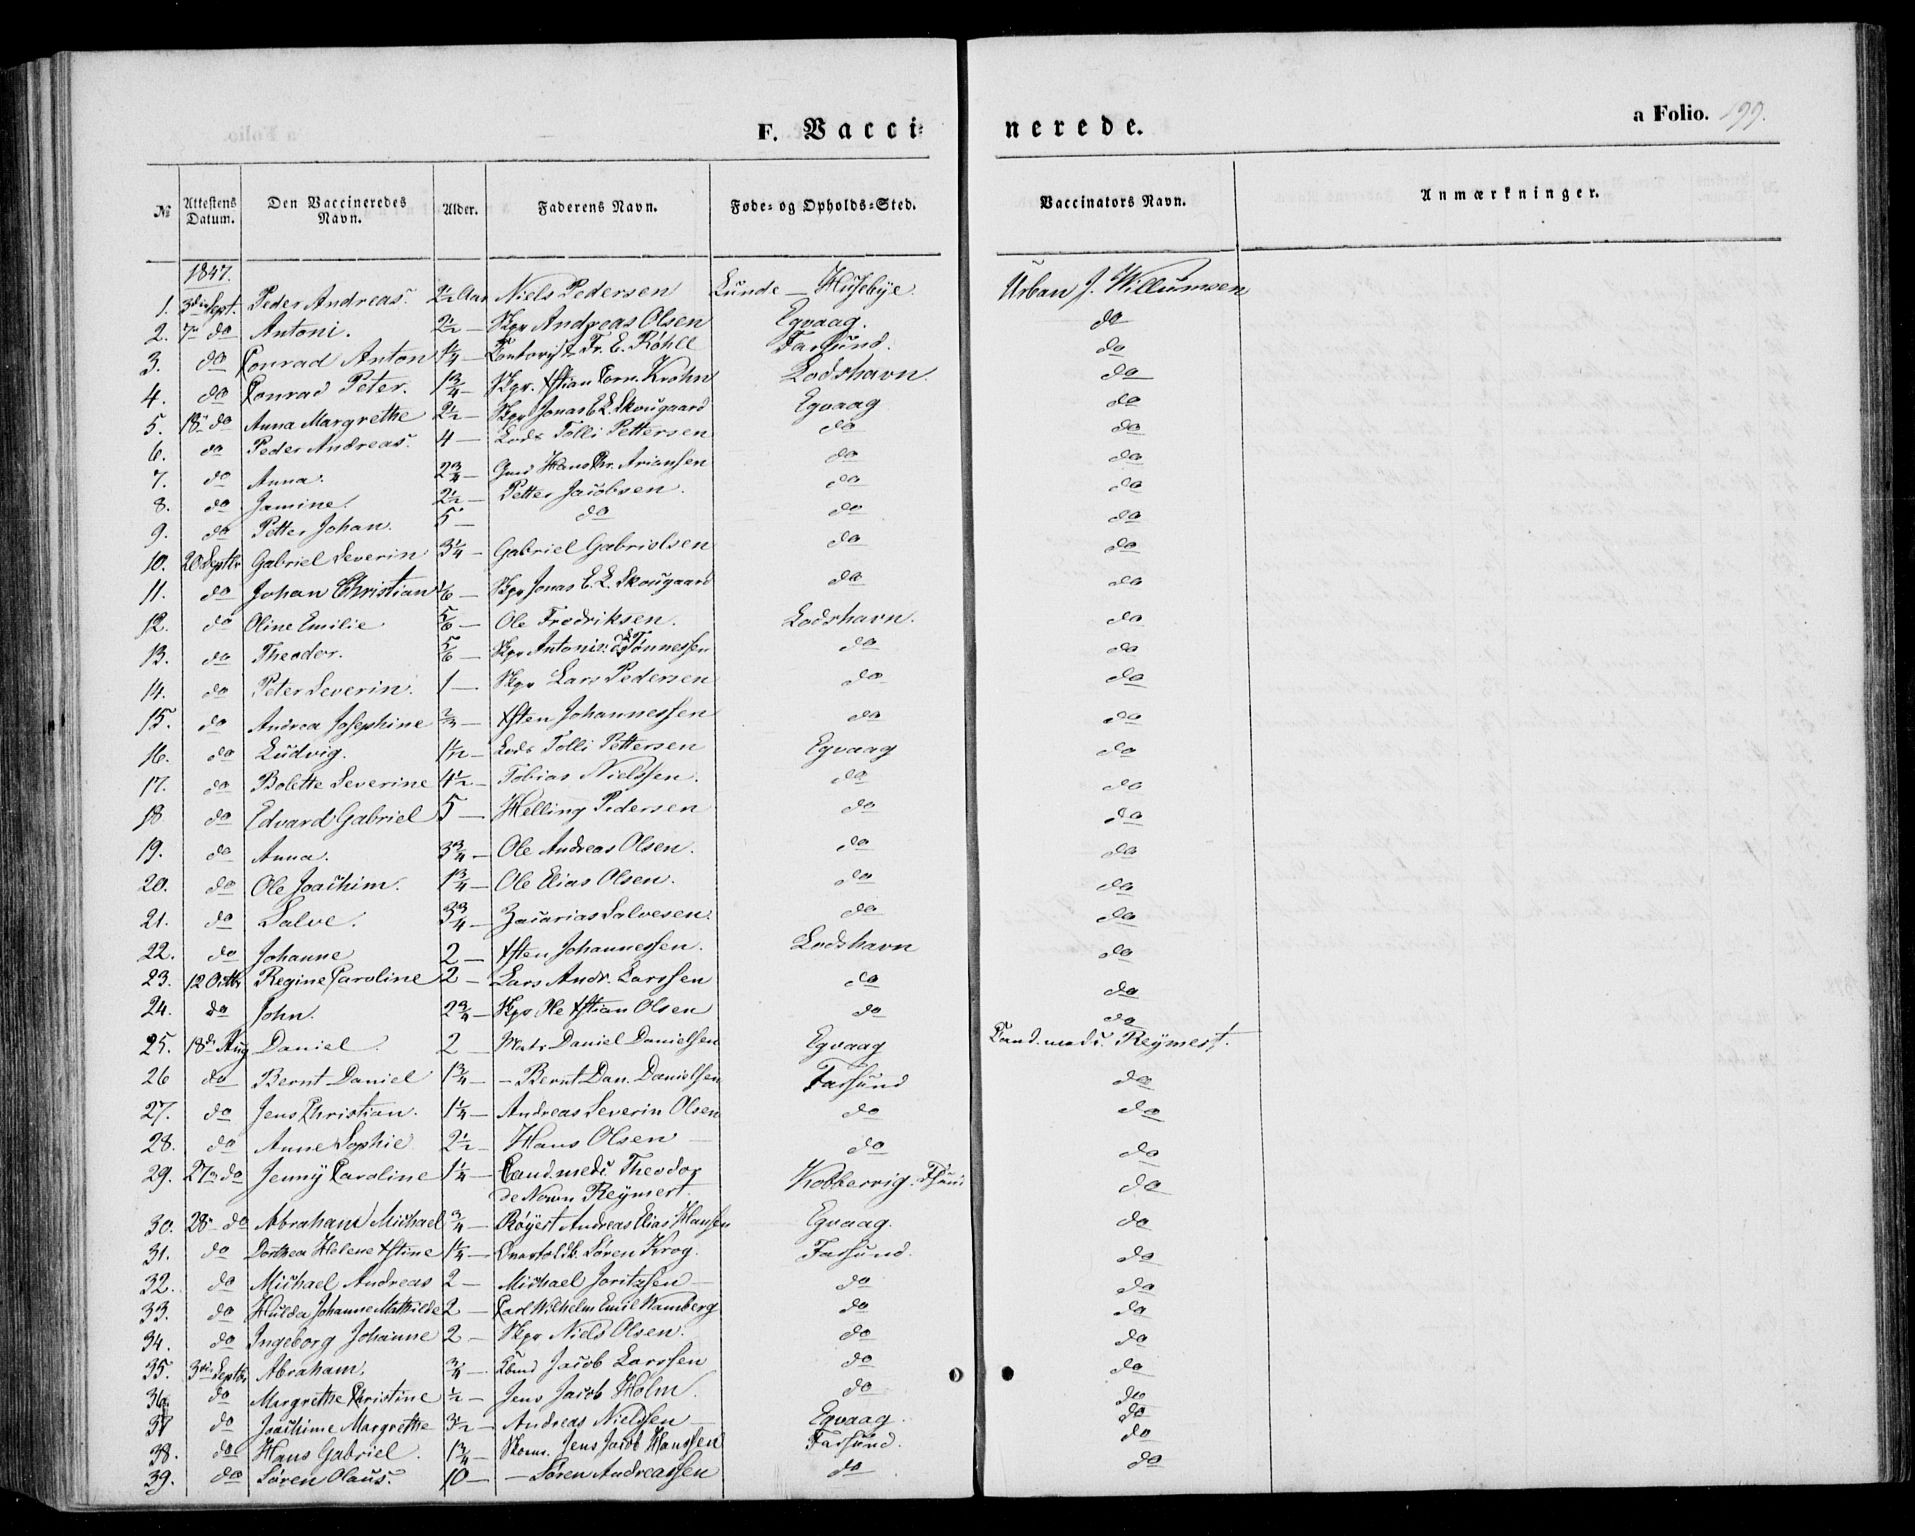 F. Vacci-
nerede.
a Folio. 199.
№ Attestens Datum. Den Vaccineredes Navn. Alder. Faderens Navn. Føde- og Opholds-Sted. Vaccinators Navn. Anmærkninger.
1847.
1. 3die Sept. Peder Andreas. 2½ Aar Niels Pedersen Lunde — Husebye Urban J. Willumsen
2. 7de do Antoni. 2½ — Skpr Andreas Olsen Egvaag. do
3. do Conrad Anton 1¼ — Fr. E. Røhll Farsund. do
4. do Conrad Peter. 1¾ — Skpr. Xstian Corn. Krohn Lodshavn. do
5. 18de do Anna Margrethe 2½ — Skpr Jonas E. L. Skougaard Egvaag do
6. do Peder Andreas. 4 — Lods Tolli Pettersen do do
7. do Anna. 2¾ — Hans Chr. Ariansen do do
8. do Jamine. 2½ — Petter Jacobsen. do do
9. do Petter Johan. 5 — do do do
10. 20 Septbr Gabriel Severin 3¼ — Gabriel Gabrielsen do do
11. do Johan Christian 1/6 — Skpr Jonas E. L. Skougaard do do
12. do Oline Emilie 5/6 — Ole Fredriksen. Lodshavn. do
13. do Theodor. 5/6 — Skpr Antonis Tønnessen do do
14. do Peter Severin. 1 — Skpr Lars Pedersen do do
15. do Andrea Josephine 2/3 — Xsten Johannessen do do
16. do Ludvig. 1½ — Lods Tolli Pettersen Egvaag do
17. do Bolette Severine 4½ — Tobias Nielssen. do do
18 do Edvard Gabriel 5 — Helling Pedersen do do
19. do Anna. 3¾ — Ole Andreas Olsen. do do
20. do Ole Joachim. 1¾ — Ole Elias Olsen. do do
21. do Salve. 3¾ — Zacarias Salvesen. do do
22. do Johanne 2 — Xsten Johannessen. Lodshavn do
23. 12 Octbr Regine Caroline 2 — Lars Andr. Larssen do do
24. do John. 2¾ — Skpr Ole Xstian Olsen do do
25. 18de Aug Daniel. 2 — Matr Daniel Danielsen Egvaag Cand. medc. Reymert.
26 do Bernt Daniel 1¾ — — Bernt Dan. Danielsen Farsund do
27. do Jens Christian. 1¼ — Andreas Severin Olsen do do
28. do Anne Sophie 2½ — Hans Olsen — do do
29. 27de do Jenny Caroline 1¼ — Cand. medc Theodor Kobbervig. do
de Reymert.
30. 28de do Abraham Michael ¾ — Røyert Andreas Elias Hansen Egvaag. do
31. do Dorthea Helene Xstine 1¼ — Søren Krog. Farsund. do
32. do Michael Andreas 2 — Michael Joritzsen — do do
33. do Hulda Johanne Mathilde 2 — Carl Wilhelm Emil Wamberg do do
34. do Ingeborg Johanne 2 — Skpr Niels Olsen. do do
35. 3die Septbr Abraham. ¾ — Jacob Larssen do do
36. do Margrethe Christine ½ — Jens Jacob Holm. do do
37 do Joachime Margrethe 3½ — Andreas Nielssen — Egvaag. do
38. do Hans Gabriel. 1¾ — Jens Jacob Hanssen Farsund. do
39. do Søren Olaus. 10 — — Søren Andreassen do do